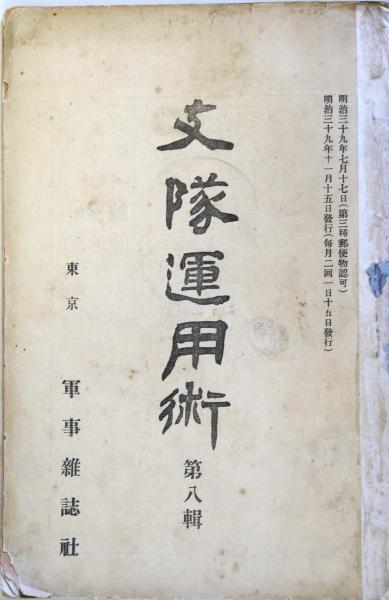 明治三十九年七月十七日(第三種郵便物認可)
明治三十九年十一月十五日發行(每月二回一日十五日發行)
支隊運用術
第八輯
東京
軍事雜誌社